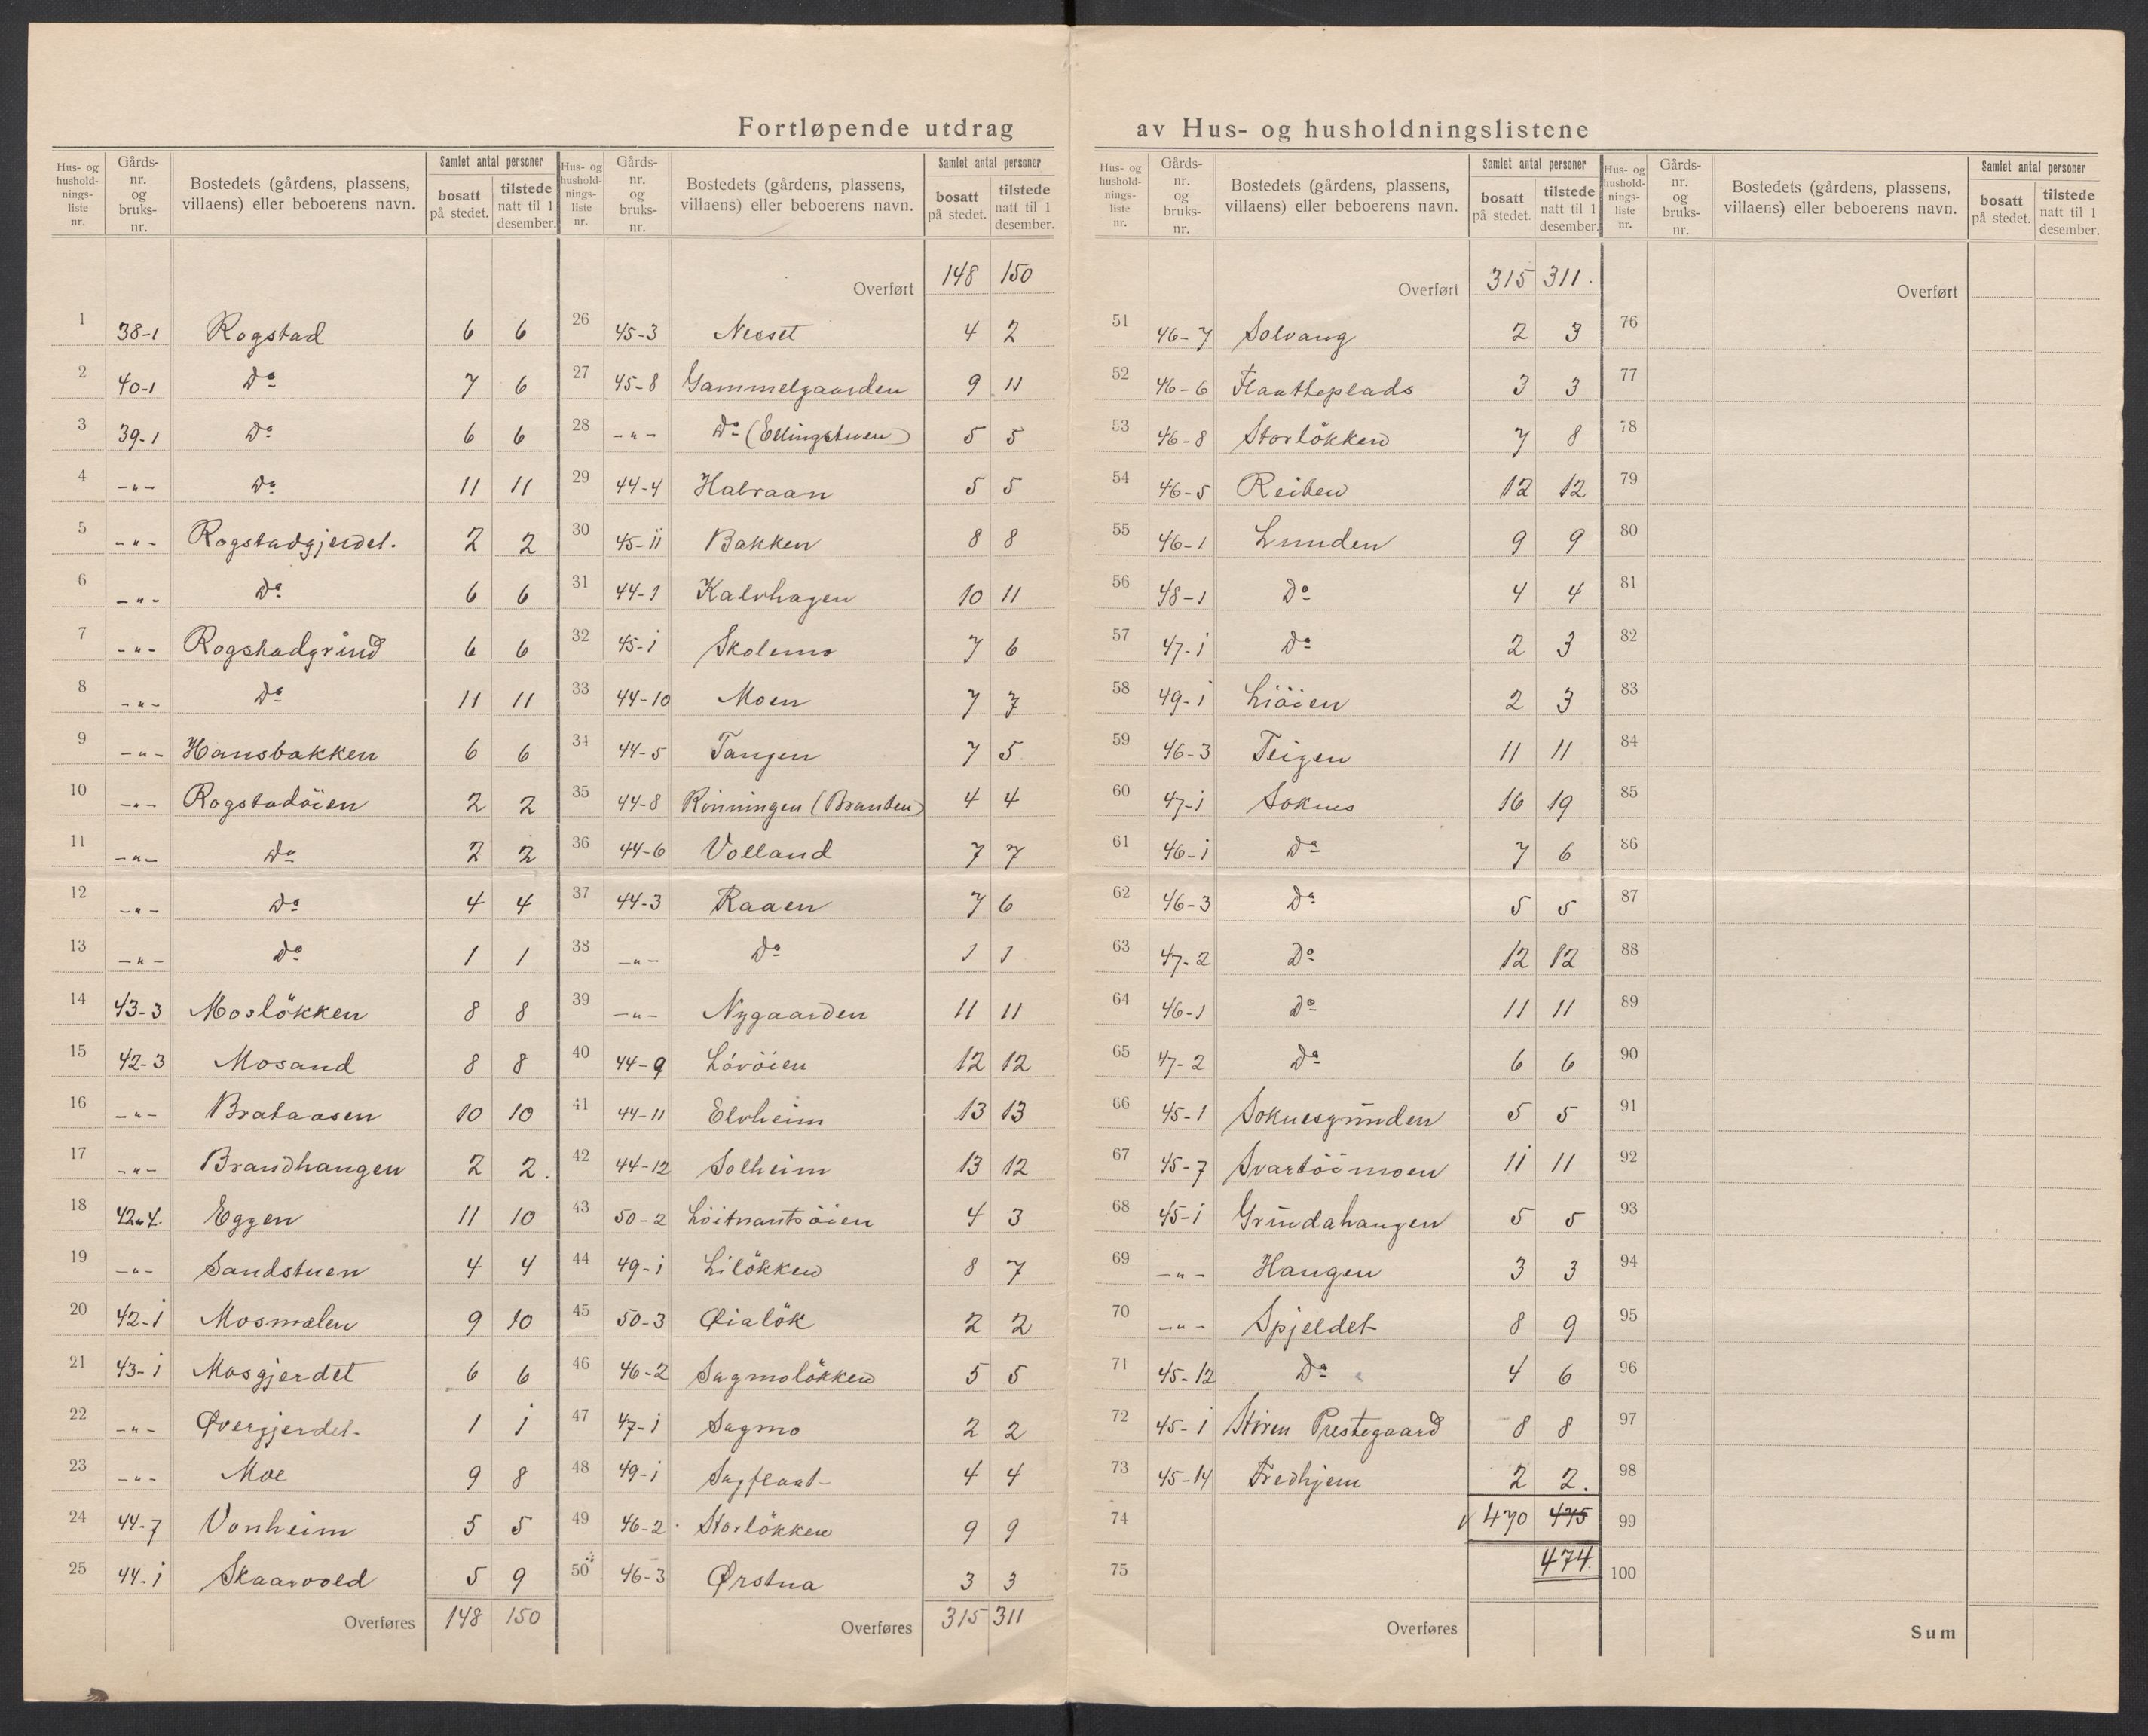 Fortløpende utdrag av Hus- og husholdningslistene
Hus- og husholdnings-liste nr. | Gårds-nr. og bruks-nr. | Bostedets (gårdens, plassens, villaens) eller beboerens navn. | Samlet antal personer bosatt på stedet. | tilstede natt til 1 desember.
1 38-1 Rogstad 6 6
2 40-1 Do 7 6
3 39-1 Do 6 6
4 -"- Do 11 11
5 -"- Rogstadgjerdet. 2 2
6 -"- Do 6 6
7 -"- Rogstadgrind 6 6
8 -"- Do 11 11
9 -"- Hansbakken 6 6
10 -"- Rogstadöien 2 2
11 -"- Do 2 2
12 -"- Do 4 4
13 -"- Do 1 1
14 43-3 Moslökken 8 8
15 42-3 Mosand 8 8
16 -"- Brataasen 10 10
17 -"- Brandhaugen 2 2.
18 42-4. Eggen 11 10
19 -"- Sandstuen 4 4
20 42-1 Mosmælen 9 10
21 43-1 Mosgjerdet 6 6
22 -"- Øvergjerdet 1 1
23 -"- Moe 9 8
24 44-7 Vonheim 5 5
25 44-1 Skaarvold 5 9
Overføres 148 150
Hus- og husholdnings-liste nr. | Gårds-nr. og bruks-nr. | Bostedets (gårdens, plassens, villaens) eller beboerens navn. | Samlet antal personer bosatt på stedet. | tilstede natt til 1 desember.
Overført 148 150
26 45-3 Nesset 4 2
27 45-8 Gammelgaarden 9 11
28 -"- Do (Ellingstuen) 5 5
29 44-4 Halvaan 5 5
30 45-11 Bakken 8 8
31 44-1 Kalvhagen 10 11
32 45-1 Skolemo 7 6
33 44-10 Moen 7 7
34 44-5 Tangen 7 5
35 44-8 Rönningen (Branden) 4 4
36 44-6 Volland 7 7
37 44-3 Raaen 7 6
38 -"- Do 1 1
39 -"- Nygaarden 11 11
40 44-9 Lövöien 12 12
41 44-11 Elvheim 13 13
42 44-12 Solheim 13 12
43 50-2 Löitnantsöien 4 3
44 49-1 Lilökken 8 7
45 50-3 Øialök 2 2
46 46-2 Sagmolökken 5 5
47 47-1 Sagmo 2 2
48 49-1 Sagflaat 4 4
49 46-2 Storlökken 9 9
50 46-3 Ørstua 3 3
Overføres 315 311
Hus- og husholdnings-liste nr. | Gårds-nr. og bruks-nr. | Bostedets (gårdens, plassens, villaens) eller beboerens navn. | Samlet antal personer bosatt på stedet. | tilstede natt til 1 desember.
Overført 315 311.
51 46-7 Solvang 2 3
52 46-6 Flaatteplads 3 3
53 46-8 Storlökken 7 8
54 46-5 Reiten 12 12
55 46-1 Lunden 9 9
56 48-1 Do 4 4
57 47-1 Do 2 3
58 49-1 Liöien 2 3
59 46-3 Teigen 11 11
60 47-1 Soknes 16 19
61 46-1 Do 7 6
62 46-3 Do 5 5
63 47-2 Do 12 12
64 46-1 Do 11 11
65 47-2 Do 6 6
66 45-1 Soknesgrinden 5 5
67 45-7 Svartöimoen 11 11
68 45-1 Grindahaugen 5 5
69 -"- Haugen 3 3
70 -"- Spjeldet 8 9
71 45-12 Do 4 6
72 45-1 Stören Prestegaard 8 8
73 45-14 Fredhjem 2 2.
74 470 475
75 474
Overføres
Hus- og husholdnings-liste nr. | Gårds-nr. og bruks-nr. | Bostedets (gårdens, plassens, villaens) eller beboerens navn. | Samlet antal personer bosatt på stedet. | tilstede natt til 1 desember.
Overført
76
77
78
79
80
81
82
83
84
85
86
87
88
89
90
91
92
93
94
95
96
97
98
99
100
Sum